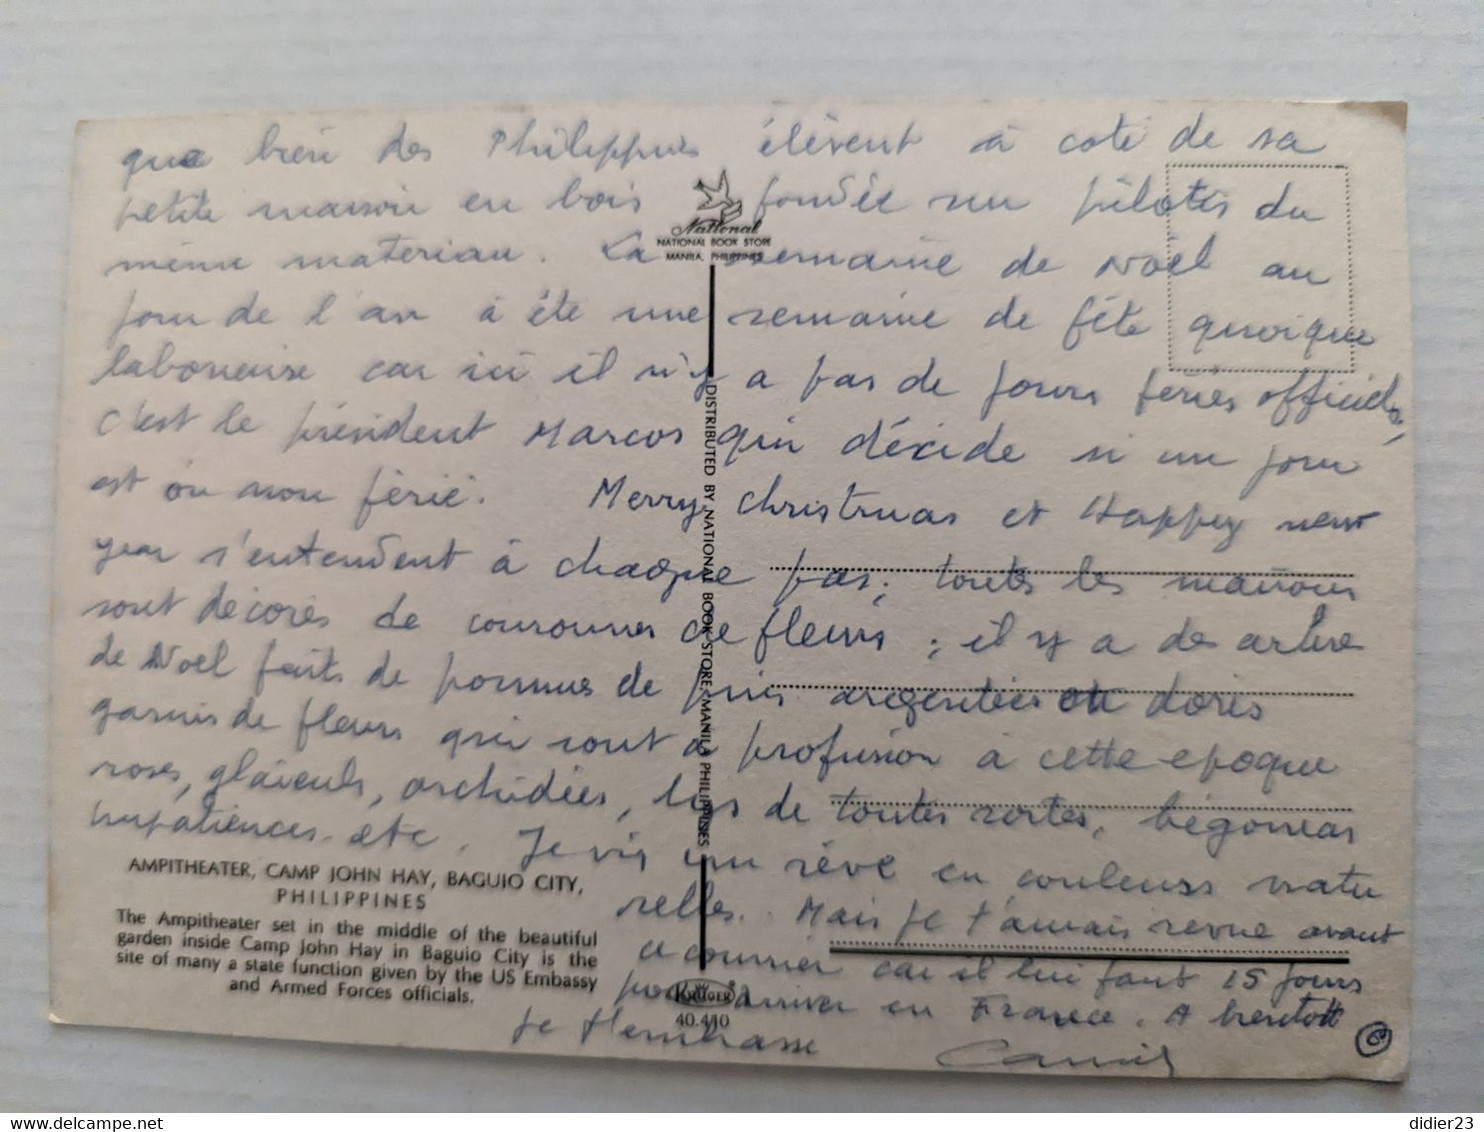 que bien des Philippins élèvent à coté de sa
petite maison en bois fondée sur pilotis du
même materiau. La semaine de Noël au
jour de l'an à été une semaine de fête quoique
laborieuse car ici il n'y a pas de jours feriés officiels,
c'est le président Marcos qui décide si un jour
est ou non férié. Merry christmas et Happy new
year s'entendent à chaque pas; toutes les maisons
sont décorés de couronnes de fleurs ; il y a des arbres
de Noël faits de pommes de pins argentées ou dorés
garnis de fleurs qui sont à profusion à cette epoque
roses, glaïeuls, orchidées, lys de toutes sortes, bégonias
impatiences. etc. Je vis un rêve en couleurs natu
relles. Mais je t'aurais revue avant
ce courrier car il lui faut 15 jours
pour arriver en France. A bientôt
Je t'embrasse
Camil
6
National
NATIONAL BOOK STORE
MANILA, PHILIPPINES
DISTRIBUTED BY NATIONAL BOOK STORE, MANILA PHILIPPINES
AMPITHEATER, CAMP JOHN HAY, BAGUIO CITY,
PHILIPPINES
The Ampitheater set in the middle of the beautiful
garden inside Camp John Hay in Baguio City is the
site of many a state function given by the US Embassy
and Armed Forces officials.
KRÜGER
40.410
delcampe.net
didier23